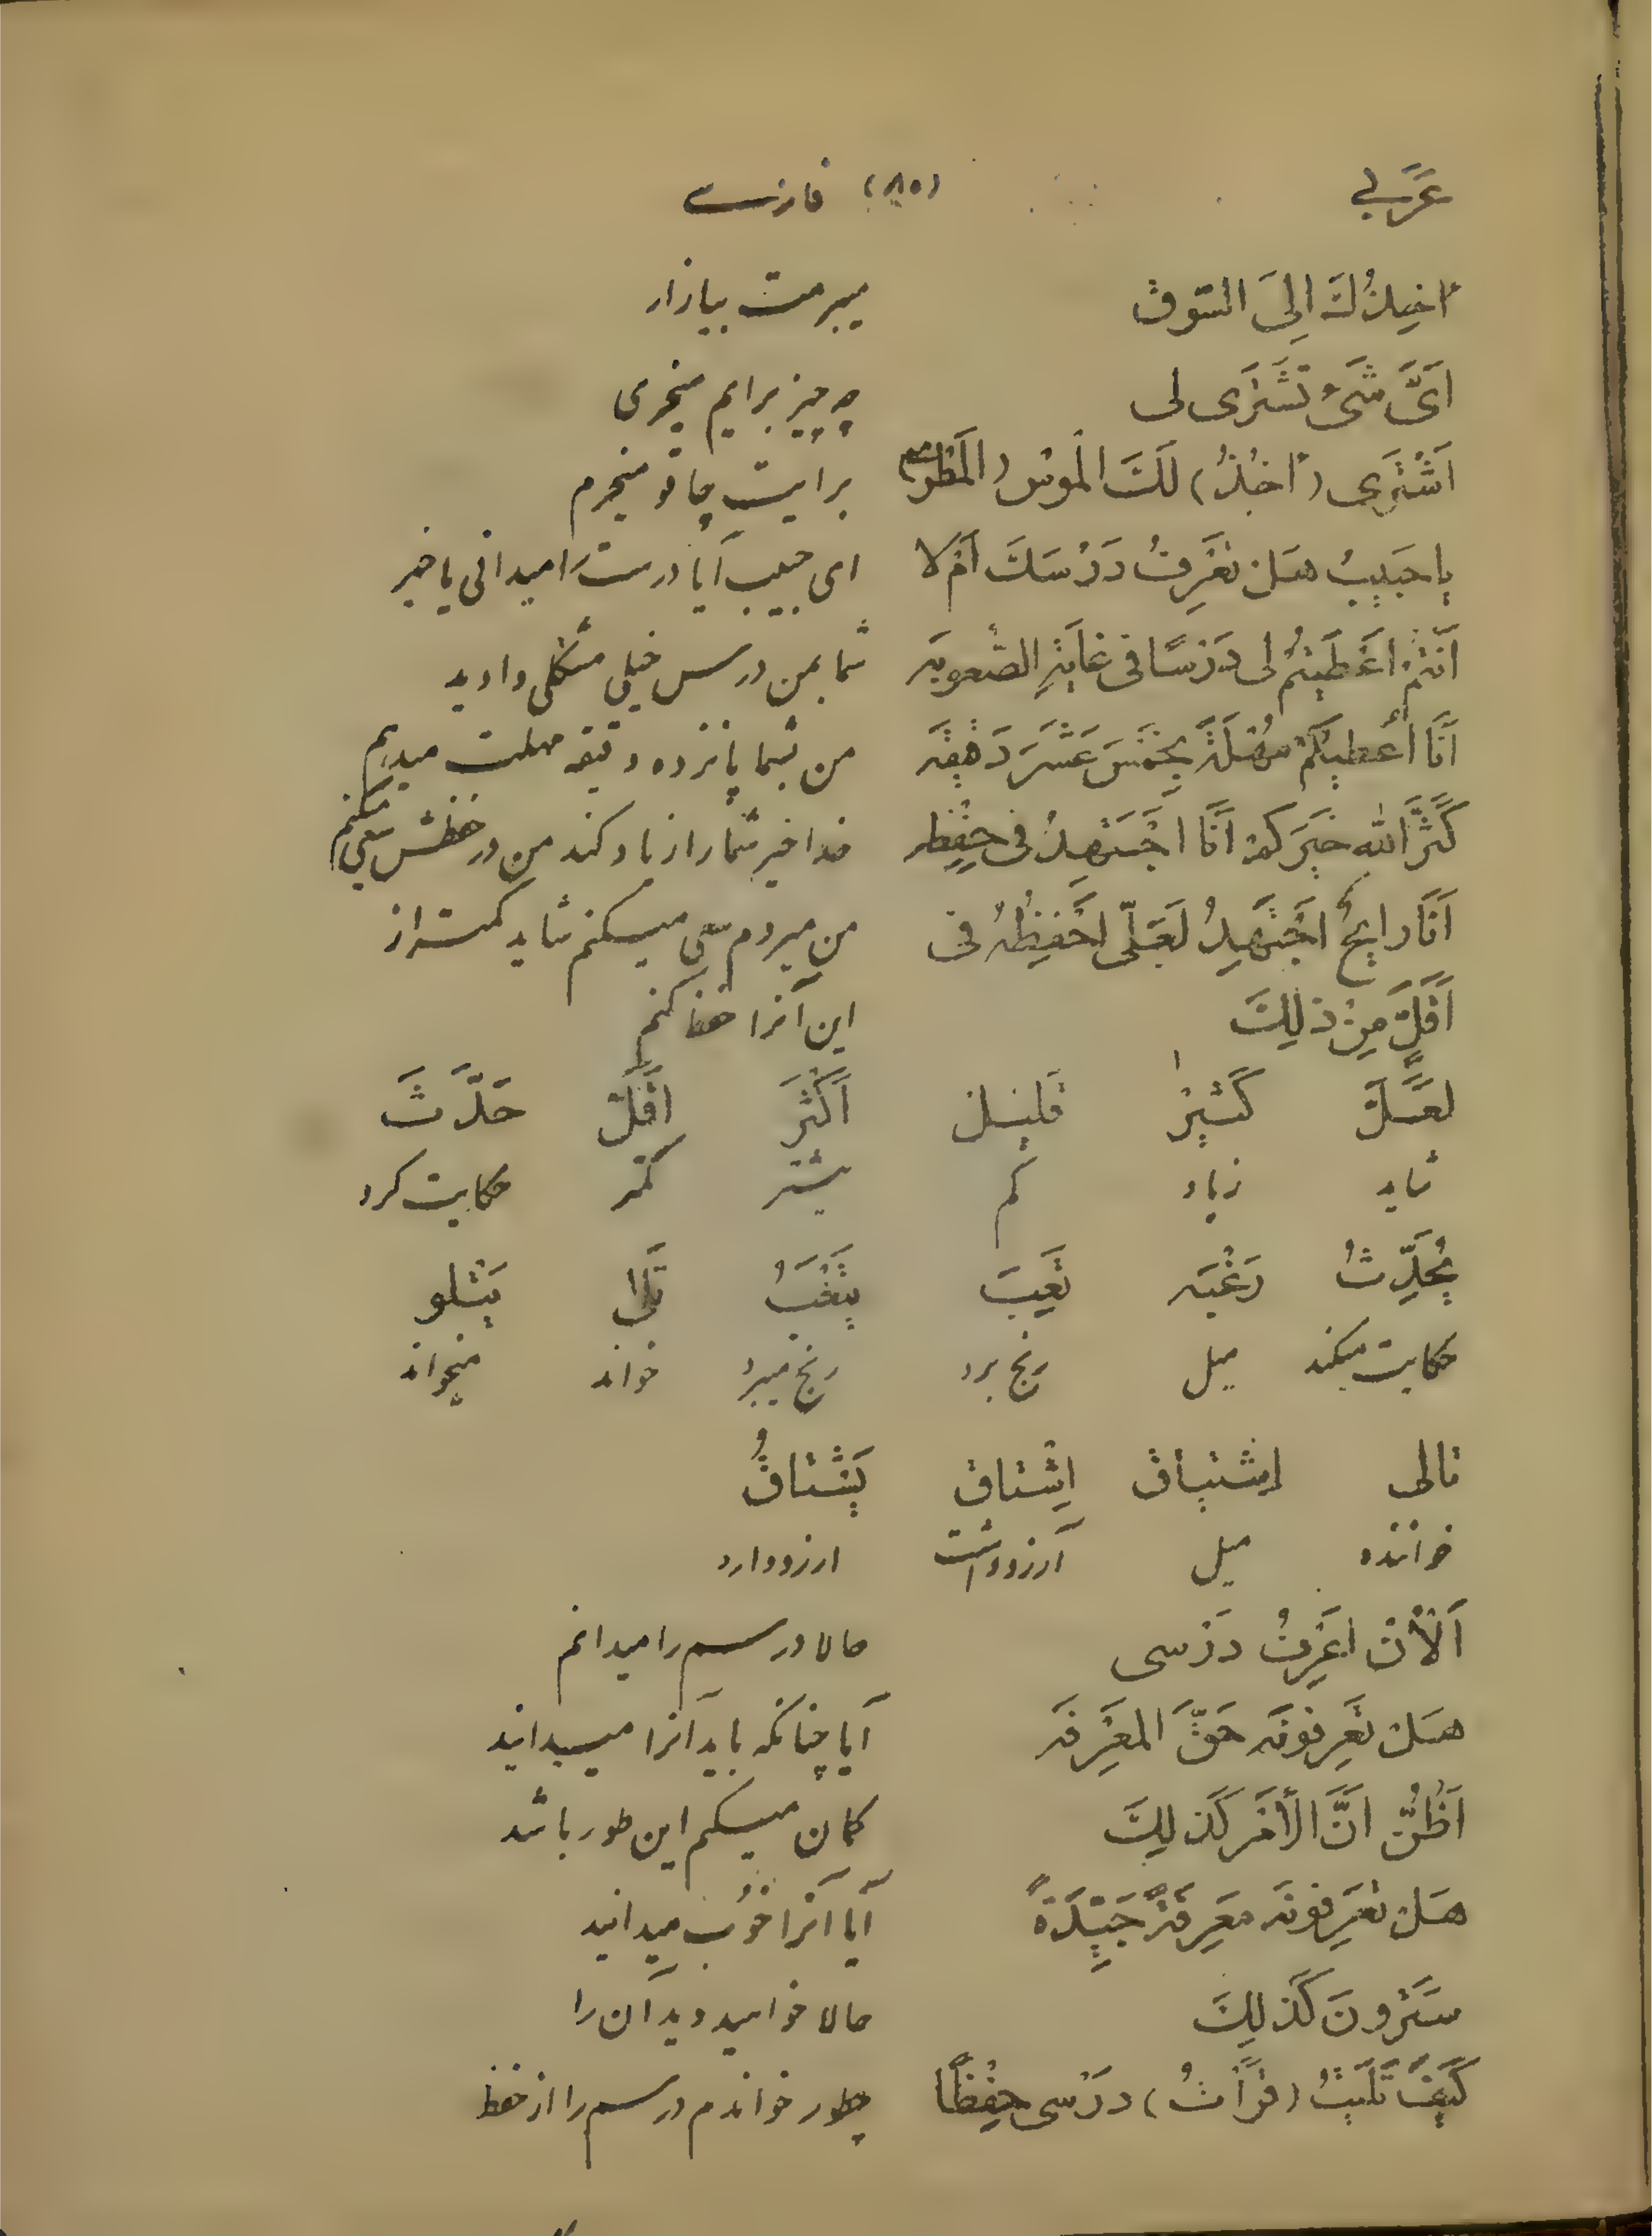 عَرَبي (٨٥) فارسی
آخِذُكَ اِلَى السّوقْ میبرمت ببازار
اَىَّ شَىْءٍ تَشْتَرى لى چه چیز برایم میخری
اَشْتَرى (آخُذُ) لَكَ الْموسَ برایت چاقو میخرم
یا حَبیبُ هَلْ تَعْرِفُ دَرْسَكَ اَمْ لا ای حبیب آیا درست را میدانی یا خیر
اَنْتُمْ اَعْطَیْتُمْ لى دَرْسًا فى غایَةِ الصُّعوبَه شما بمن درس خیلی مشکلی دادید
اَنَا اُعْطیكُمْ مُهْلَةً بِخَمْسَ عَشَرَ دَقیقَه من بشما پانزده دقیقه مهلت میدهم
كَثَّرَ اللهُ خَیْرَكُمْ اَنَا اَجْتَهِدُ فى حِفْظِه خدا خیر شما را زیاد کند من در حفظش سعی میکنم
اَنَا رایِحٌ اَجْتَهِدُ لَعَلّى اَحْفِظُهُ فى من میروم سعی میکنم شاید کمتر از
اَقَلَّ مِنْ ذلِكَ این آنرا حفظ کنم
لَعَلَّ كَثیرْ قَلیلْ اَكْثَرَ اَقَلَّ حَدَّثَ
شاید زیاد کم بیشتر کمتر حکایت کرد
یُحَدِّثُ رَغْبَه تَعِبَ یَتْعَبُ تَلى یَتْلو
حکایت میکند میل رنج برد رنج میبرد خواند میخواند
تالى اِشْتیاقْ اِشْتاقَ یَشْتاقُ
خواننده میل آرزو داشت آرزو دارد
اَلْآنْ اَعْرِفُ دَرْسى حالا درسم را میدانم
هَلْ تَعْرِفونَه حَقَّ الْمَعْرِفَه آیا چنانکه باید آنرا میدانید
اَظُنُّ اَنَّ الْأَمْرَ كَذلِكَ گمان میکنم این طور باشد
هَلْ تَعْرِفونَه مَعْرِفَةً جَیِّدَةً آیا آنرا خوب میدانید
سَتَرَونَ كَذلِكَ حالا خواهید دید آن را
كَیْفَ تَلَیْتُ (قَرَأْتُ) دَرْسى حِفْظًا چطور خواندم درسم را از حفظ